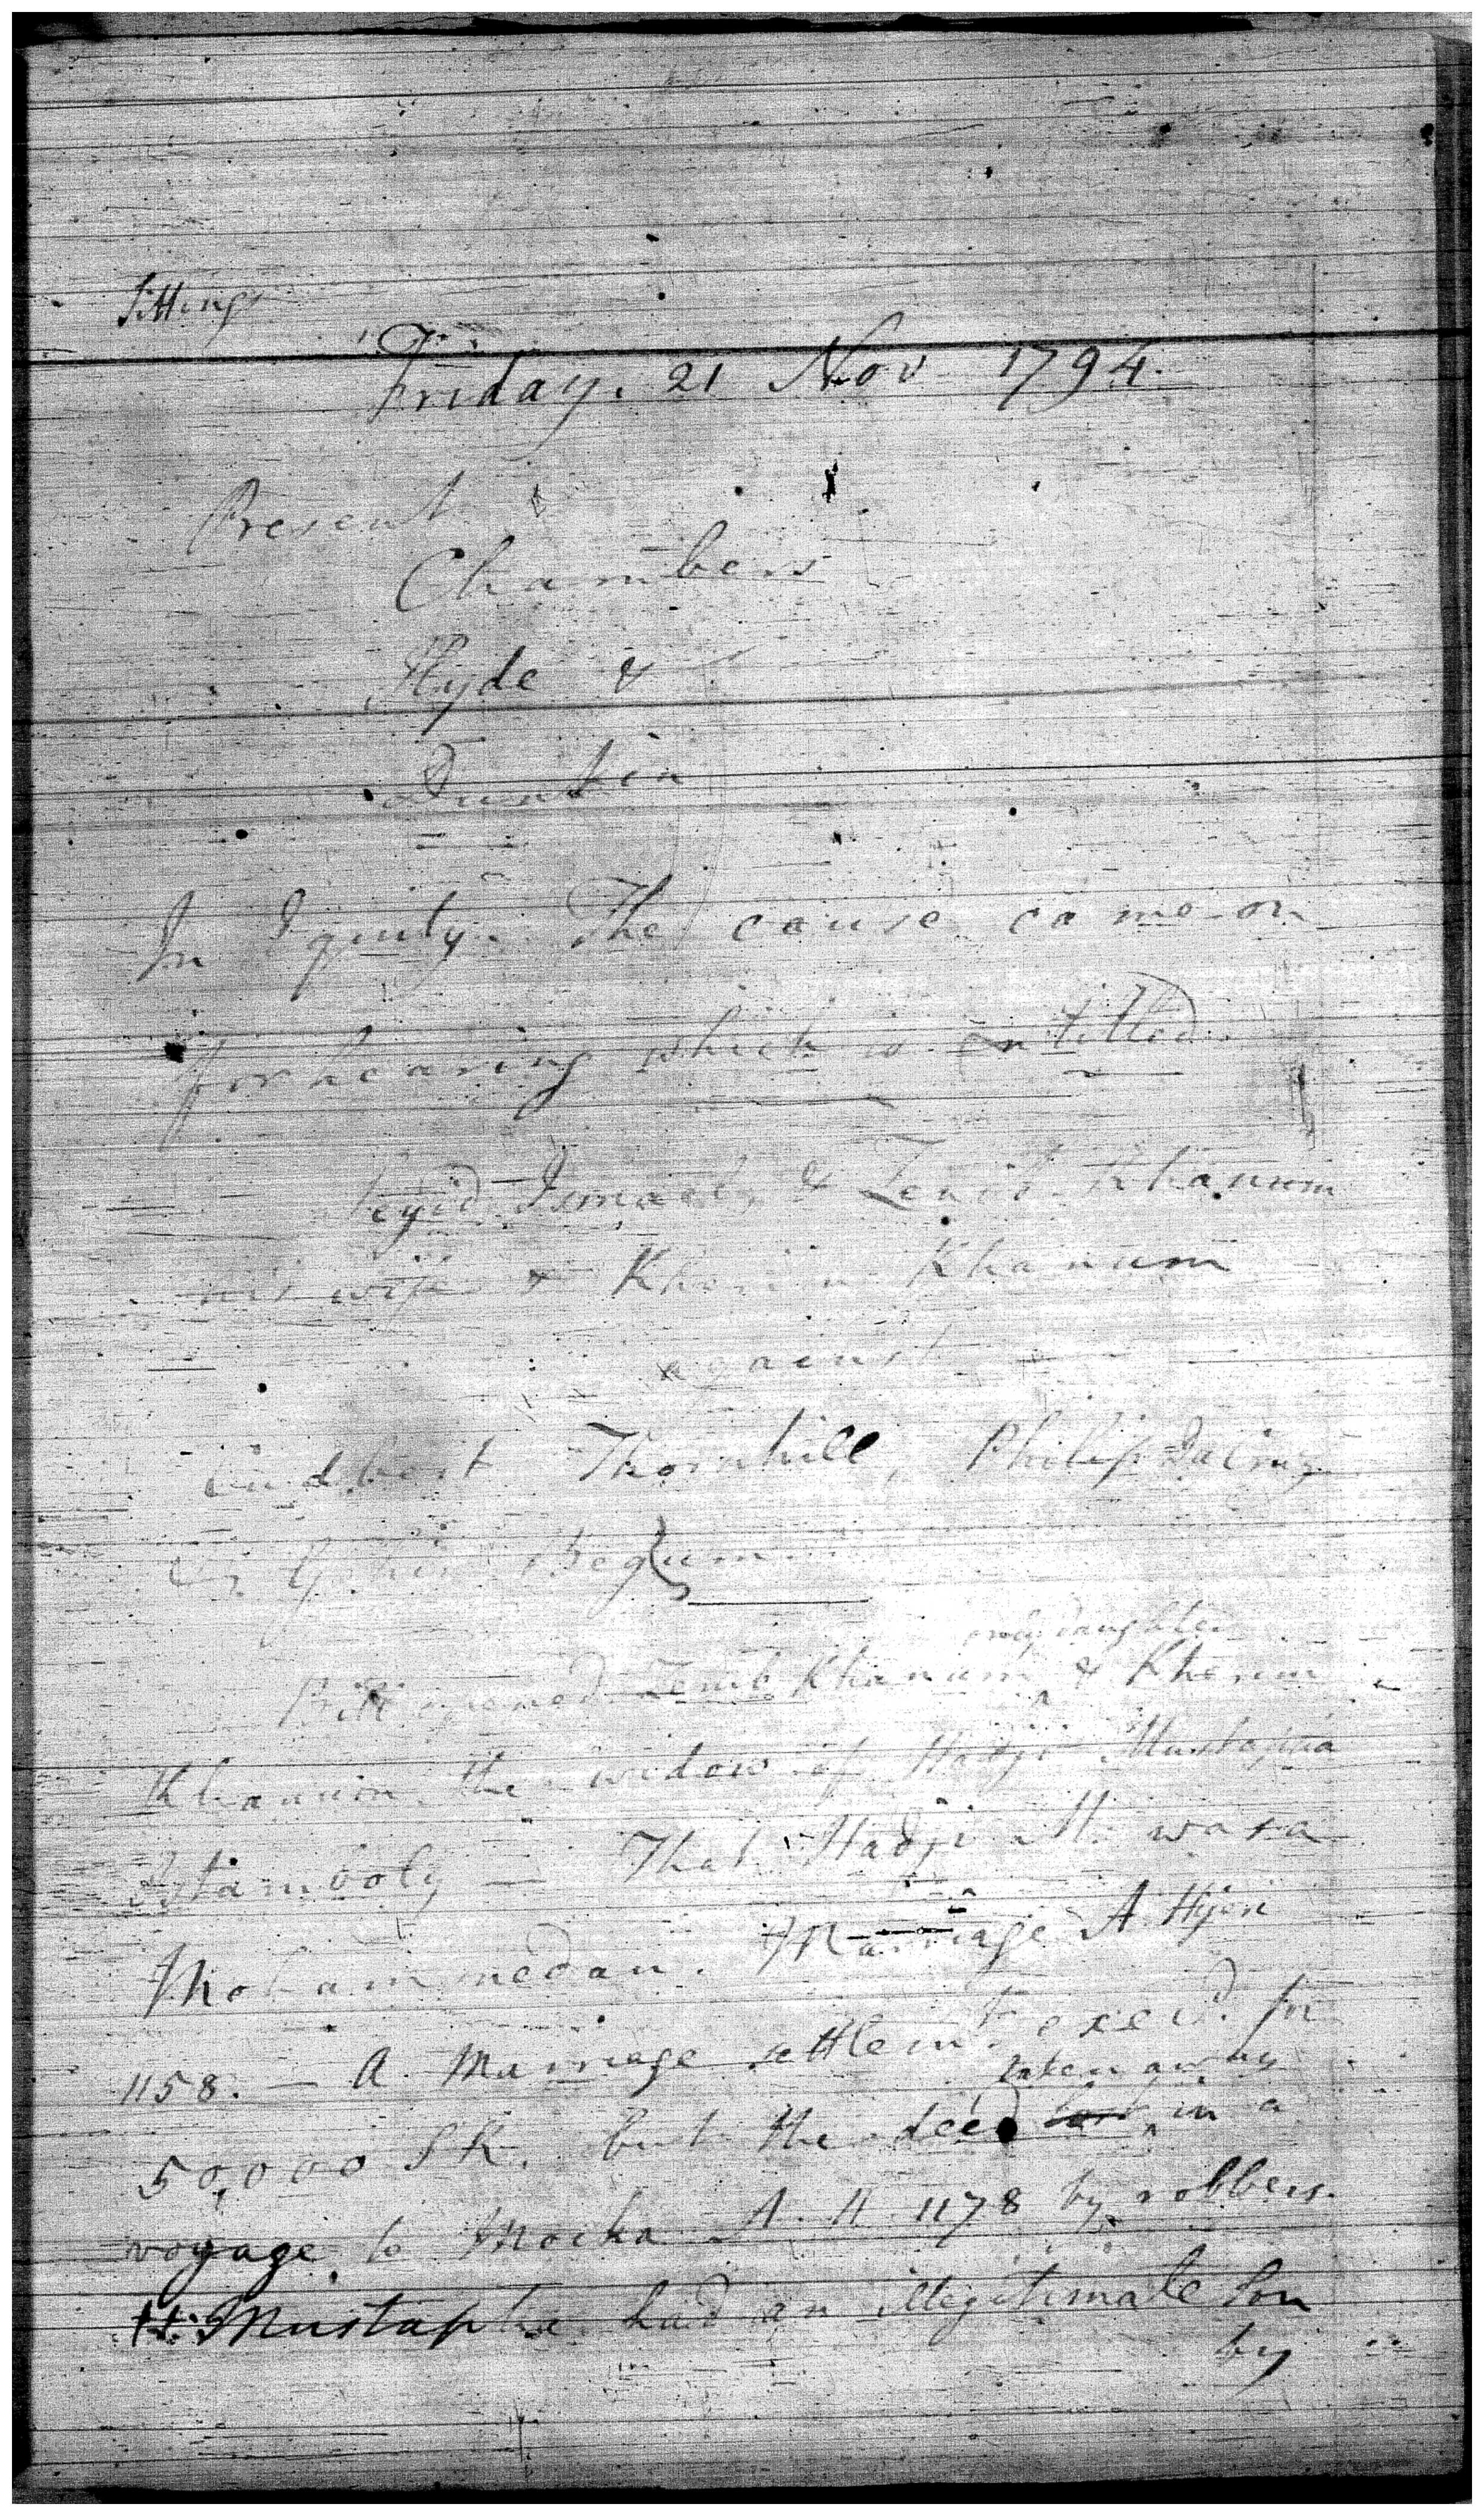 Sittings
Friday. 21 Nov 1794.
Present
Chambers
Hyde &
Dunkin
In Equity. The cause came on
for hearing which is entitled
Seyid Ismael & Zenib Khanum
his wife & Khanum
against
Cudbert Thornhill, Philip
Begum
only daughter
Zenib Khanum & Kherim
Khanum the widow of Hadji Mustapha
Istamboly — That Hadji M. was a
Mohammedan. Marriage A. Hijeri
1158. — A Marriage settlemt. exec'd. for
taken away
50,000 SR. but the deed lost in a
voyage to Mocha A. H. 1178 by robbers.
H. Mustapha had an illegitimate Son
by